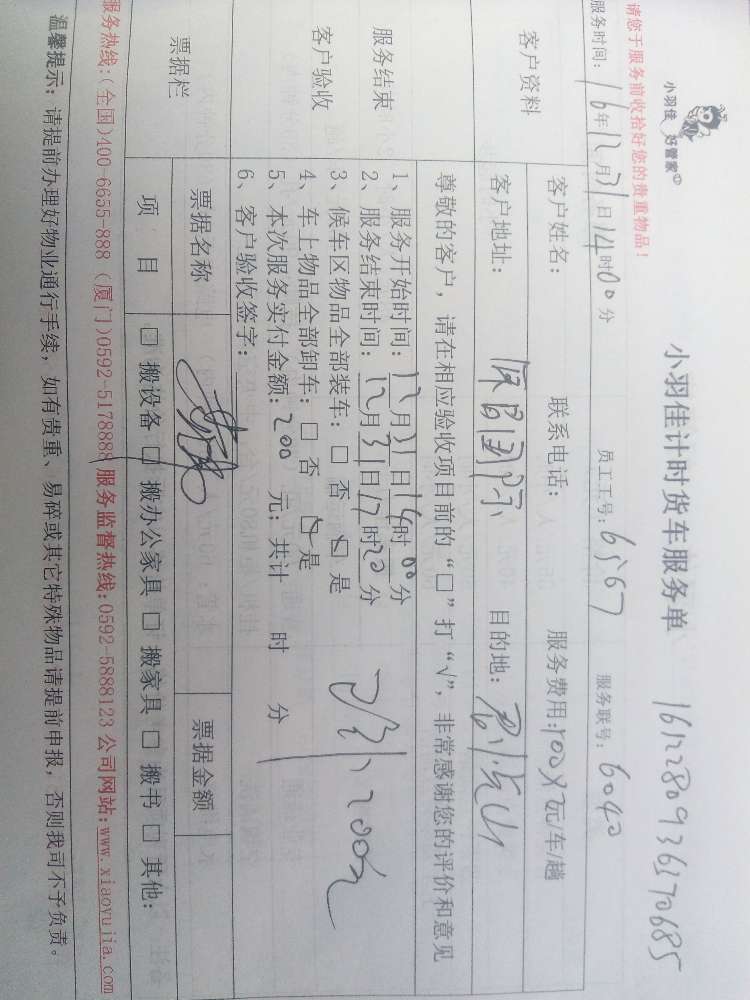 小羽佳 好管家
小羽佳计时货车服务单 1612280936170685
请您于服务前收拾好您的贵重物品!
服务时间: 16年12月31日14时00分 员工工号: 6567 服务联号: 6040
客户资料
客户姓名: 联系电话: 服务费用:100×2元/车/趟
客户地址: 国际 目的地:
尊敬的客户,请在相应验收项目前的“□”打“√”,非常感谢您的评价和意见
服务结束
客户验收
1、服务开始时间: 12月31日14时00分
2、服务结束时间: 12月31日17时20分
3、候车区物品全部装车: □ 否 □ 是
4、车上物品全部卸车: □ 否 □ 是
5、本次服务实付金额: 200 元; 共计 时 分
6、客户验收签字:
200元
票据栏
票据名称 票据金额
项 目 □ 搬设备 □ 搬办公家具 □ 搬家具 □ 搬书 □ 其他:
服务热线:(全国)400-6655-888 (厦门)0592-5178888 服务监督热线:0592-5888123 公司网站:www.xiaoyujia.com
温馨提示: 请提前办理好物业通行手续, 如有贵重、易碎或其它特殊物品请提前申报, 否则我司不予负责。